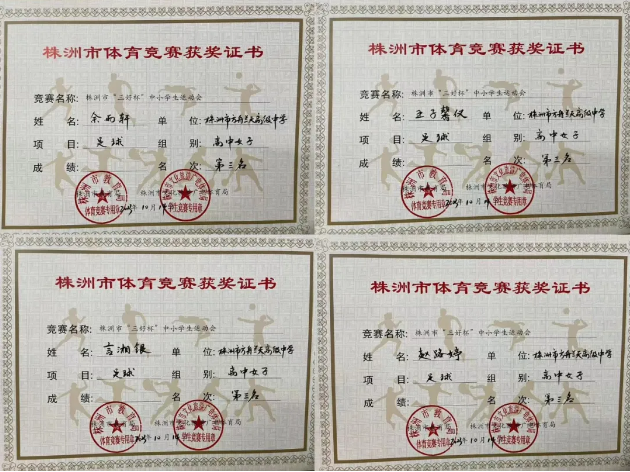 株洲市体育竞赛获奖证书
竞赛名称: 株洲市“三好杯”中小学生运动会
姓 名: 余雨轩 单 位: 株洲市方舟兰天高级中学
项 目: 足球 组 别: 高中女子
成 绩: 名 次: 第三名
株洲市教育局
体育竞赛专用章
学生竞赛专用章
株洲市体育竞赛获奖证书
竞赛名称: 株洲市“三好杯”中小学生运动会
姓 名: 王子馨仪 单 位: 株洲市方舟兰天高级中学
项 目: 足球 组 别: 高中女子
成 绩: 名 次: 第三名
株洲市教育局
体育竞赛专用章
学生竞赛专用章
株洲市体育竞赛获奖证书
竞赛名称: 株洲市“三好杯”中小学生运动会
姓 名: 言湘银 单 位: 株洲市方舟兰天高级中学
项 目: 足球 组 别: 高中女子
成 绩: 名 次: 第三名
株洲市教育局
体育竞赛专用章
学生竞赛专用章
株洲市体育竞赛获奖证书
竞赛名称: 株洲市“三好杯”中小学生运动会
姓 名: 赵路婷 单 位: 株洲市方舟兰天高级中学
项 目: 足球 组 别: 高中女子
成 绩: 名 次: 第三名
株洲市教育局
体育竞赛专用章
学生竞赛专用章